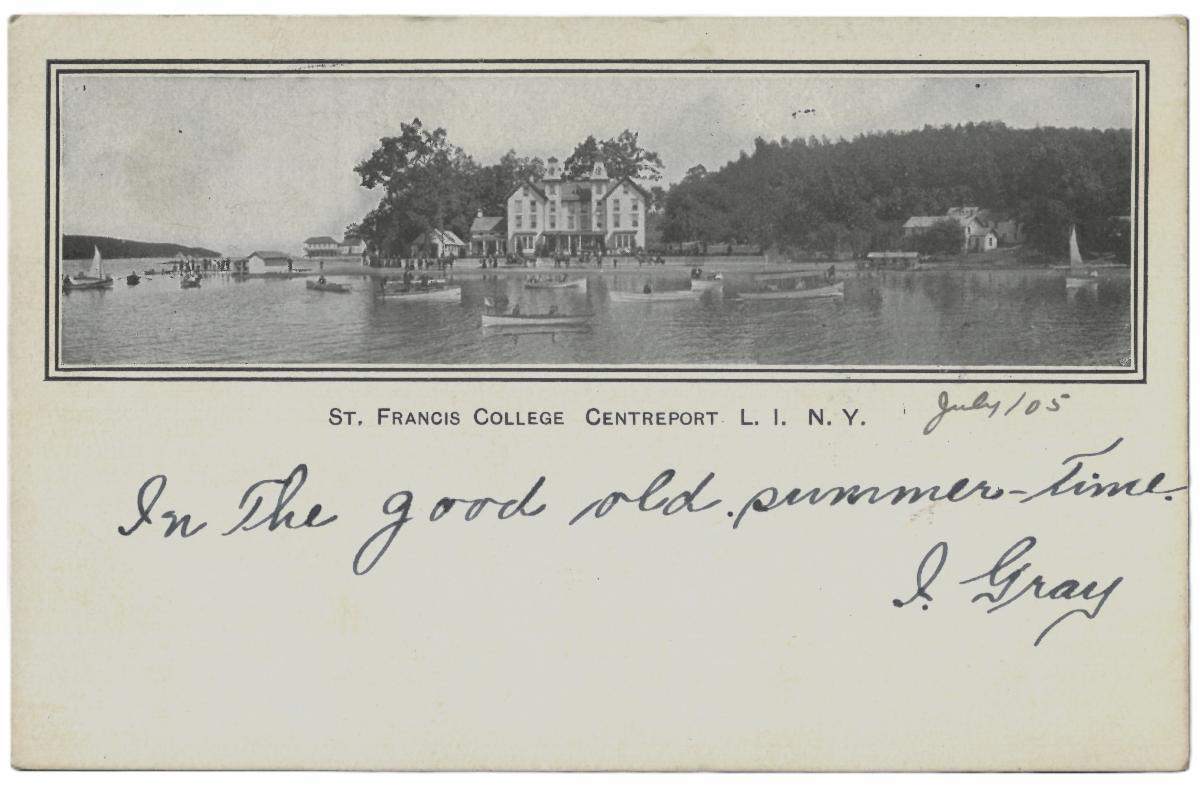 St. Francis College Centreport L. I. N. Y.
July/05
In The good old summer-time.
I. Gray